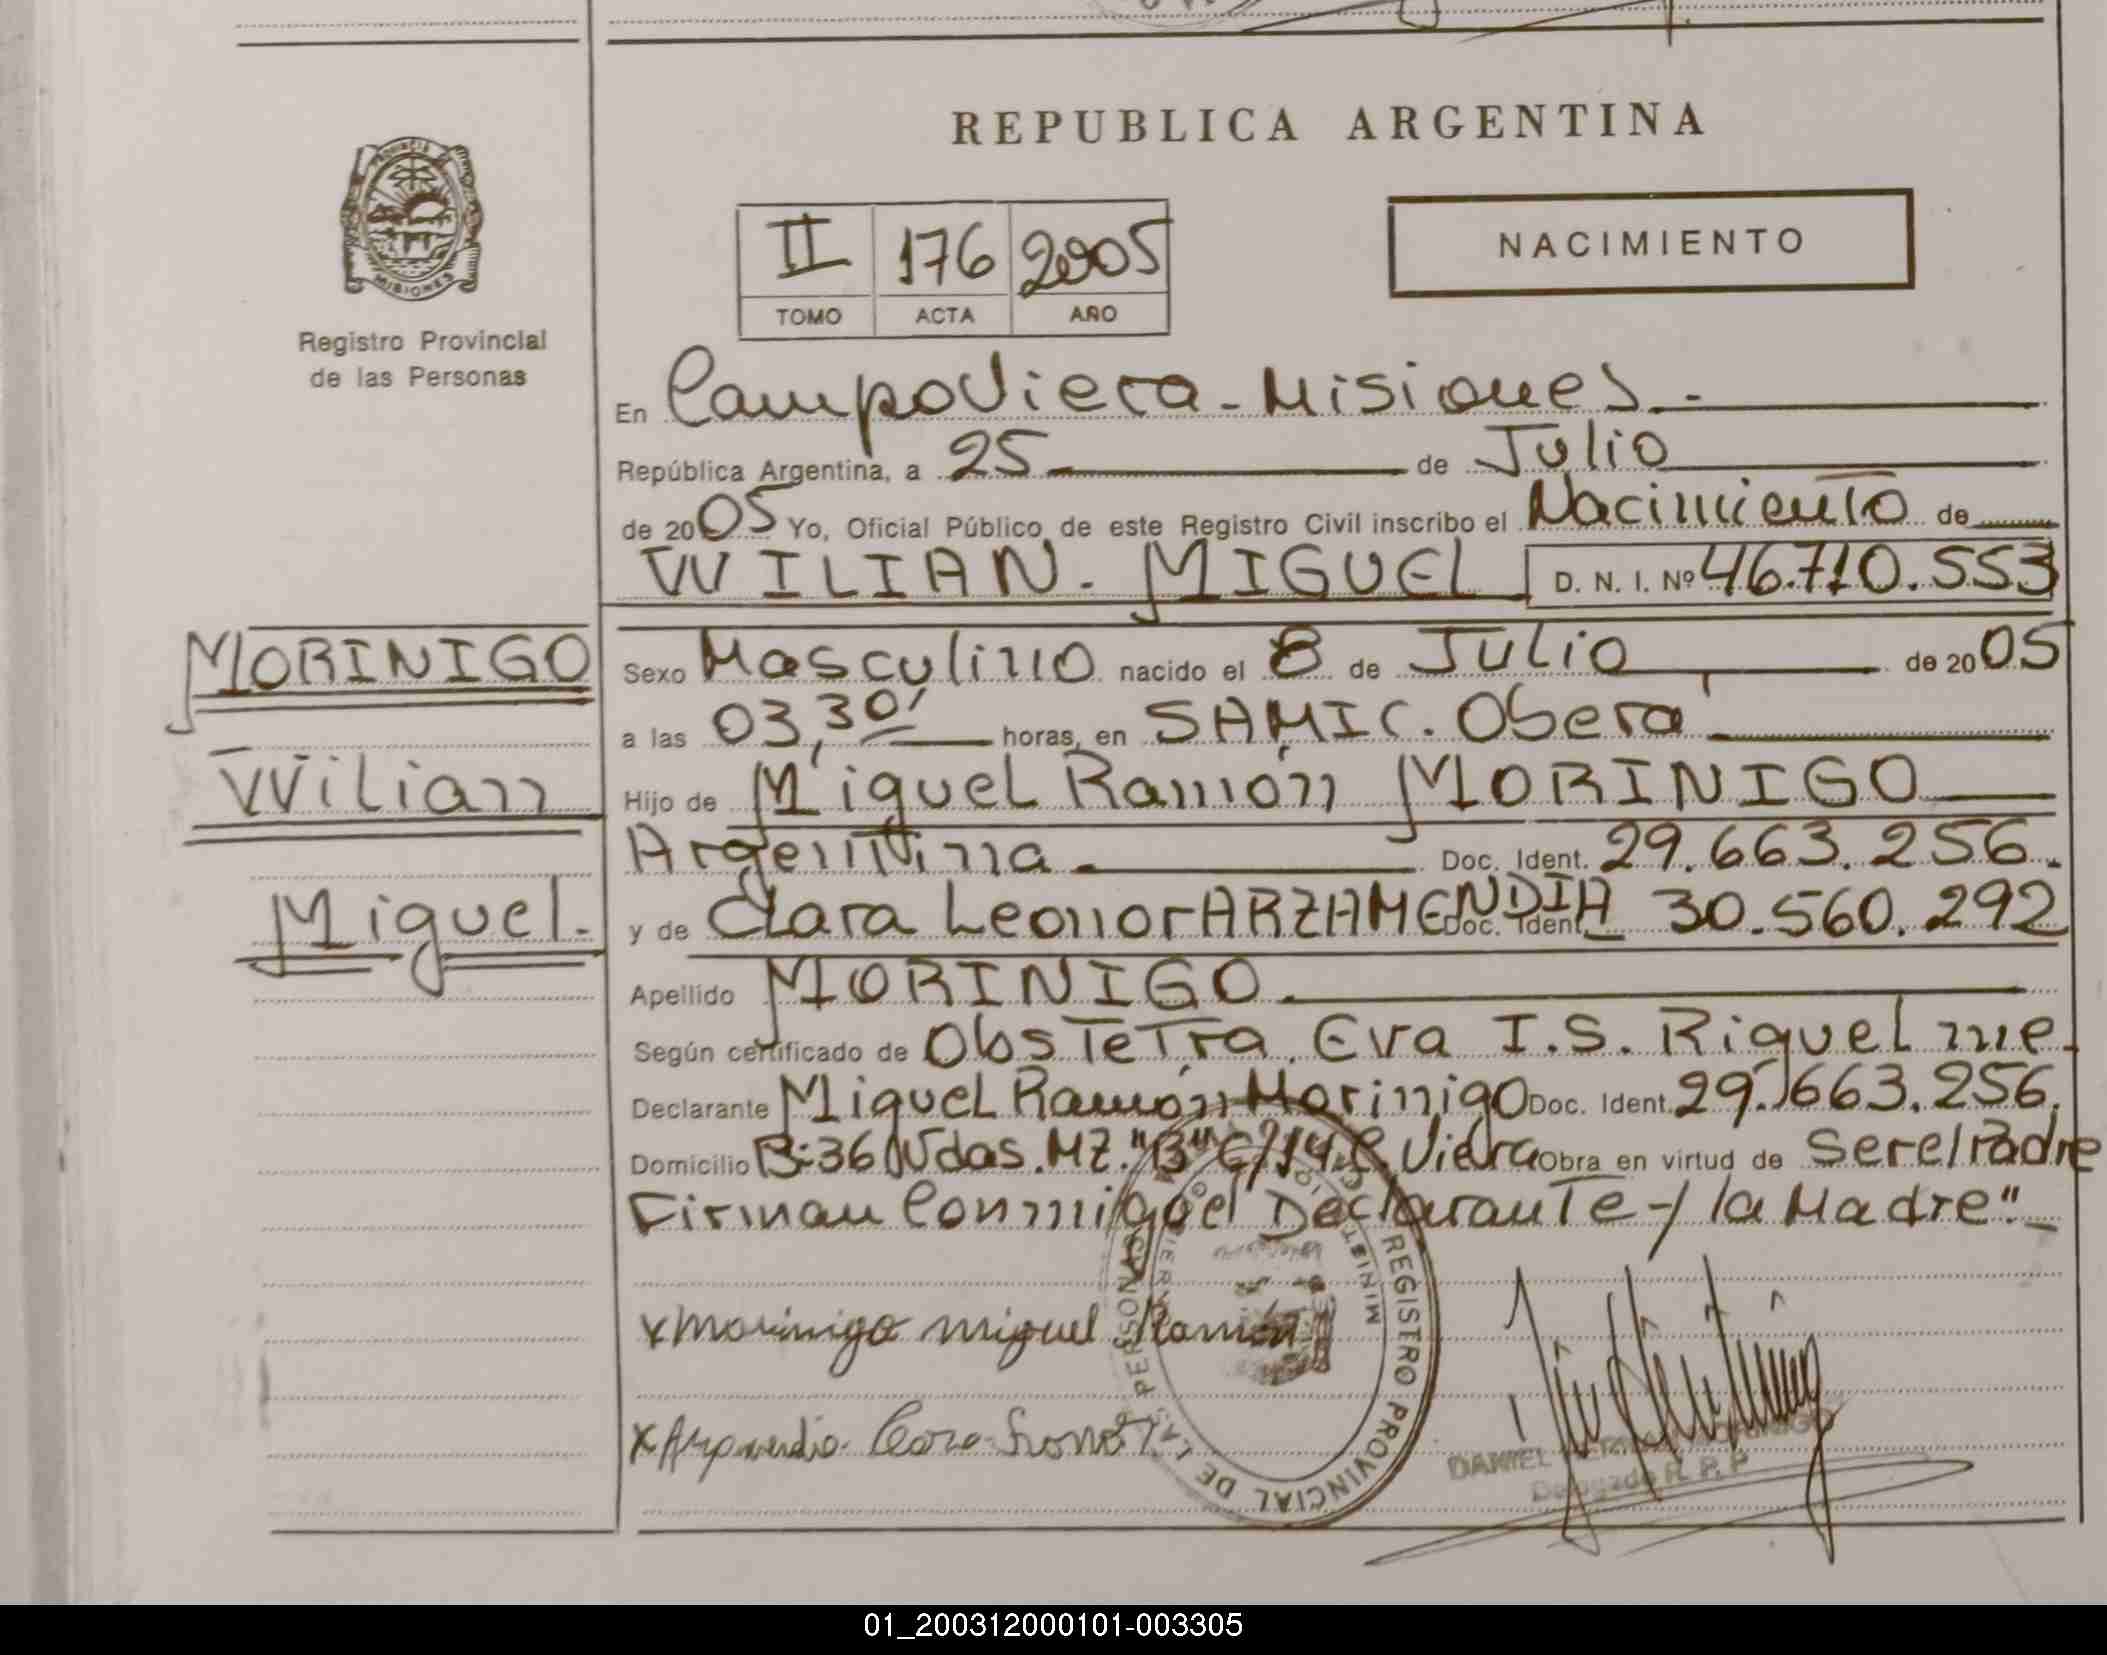 REPUBLICA ARGENTINA
PROVINCIA DE
MISIONES
Registro Provincial
de las Personas
II 176 2005
TOMO ACTA AÑO
NACIMIENTO
En Campo Viera - Misiones.-
República Argentina, a 25 de Julio
de 2005 Yo, Oficial Público de este Registro Civil inscribo el Nacimiento de
WILIAN. MIGUEL D. N. I. Nº 46.710.553
MORINIGO
Wilian
Miguel.
Sexo Masculino nacido el 8 de Julio de 2005
a las 03,30' horas, en SAMIC. Obera
Hijo de Miguel Ramón MORINIGO
Argentina Doc. Ident. 29.663.256.
y de Clara Leonor ARZAMENDIA Doc. Ident. 30.560.292
Apellido MORINIGO
Según certificado de Obstetra. Eva I.S. Riquelme.
Declarante Miguel Ramón Morinigo Doc. Ident. 29.663.256.
Domicilio B: 36 Vdas. MZ. "B" C/14. C. Viera Obra en virtud de Ser el Padre
Firman Conmigo el Declarante y la Madre".-
x Morinigo Miguel Ramón
REGISTRO PROVINCIAL DE LAS PERSONAS
DANIEL
Delegado R. P. P
01_200312000101-003305